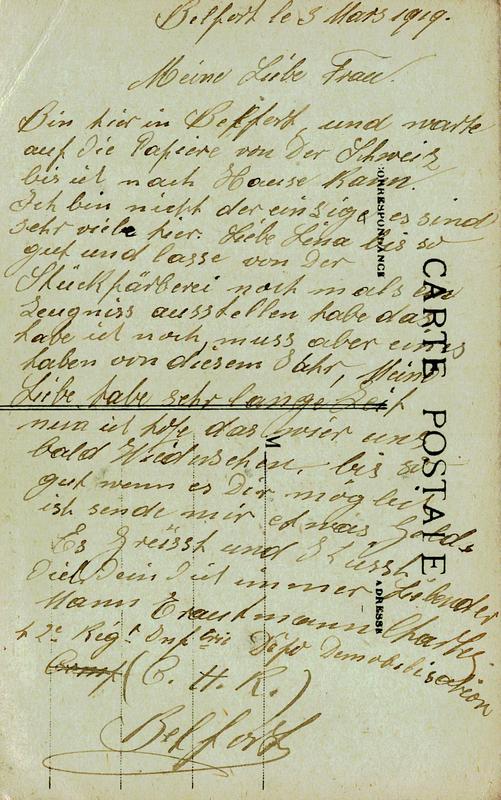 Belfort le 3 Mars 1919.
Meine Liebe Frau.
Bin hier in Belfort, und warte
auf die Papiere von Der Schweiz
bis ich nach Hause Kann.
Ich bin nicht der einzige es sind
sehr viele hier. Liebe Lina bis so
gut und lasse von Der
Stückfärberei noch mals ein
Zeugniss ausstellen habe das
habe ich noch, muss aber eines
haben von diesem Jahr, Meine
Liebe habe sehr lange Zeit
nun ich hofe das wier uns
bald Wiedersehen. bis so
gut wenn es Dir möglich
ist sende mir etwas Geld.
Es Greisst und Küsst
Dich Dein Dich immer Liebender
Mann Trautmann Charles
2e Regt Depo Demobilisation
(C. H. R.)
Belfort
CARTE POSTALE
CORRESPONDANCE
ADRESSE
M